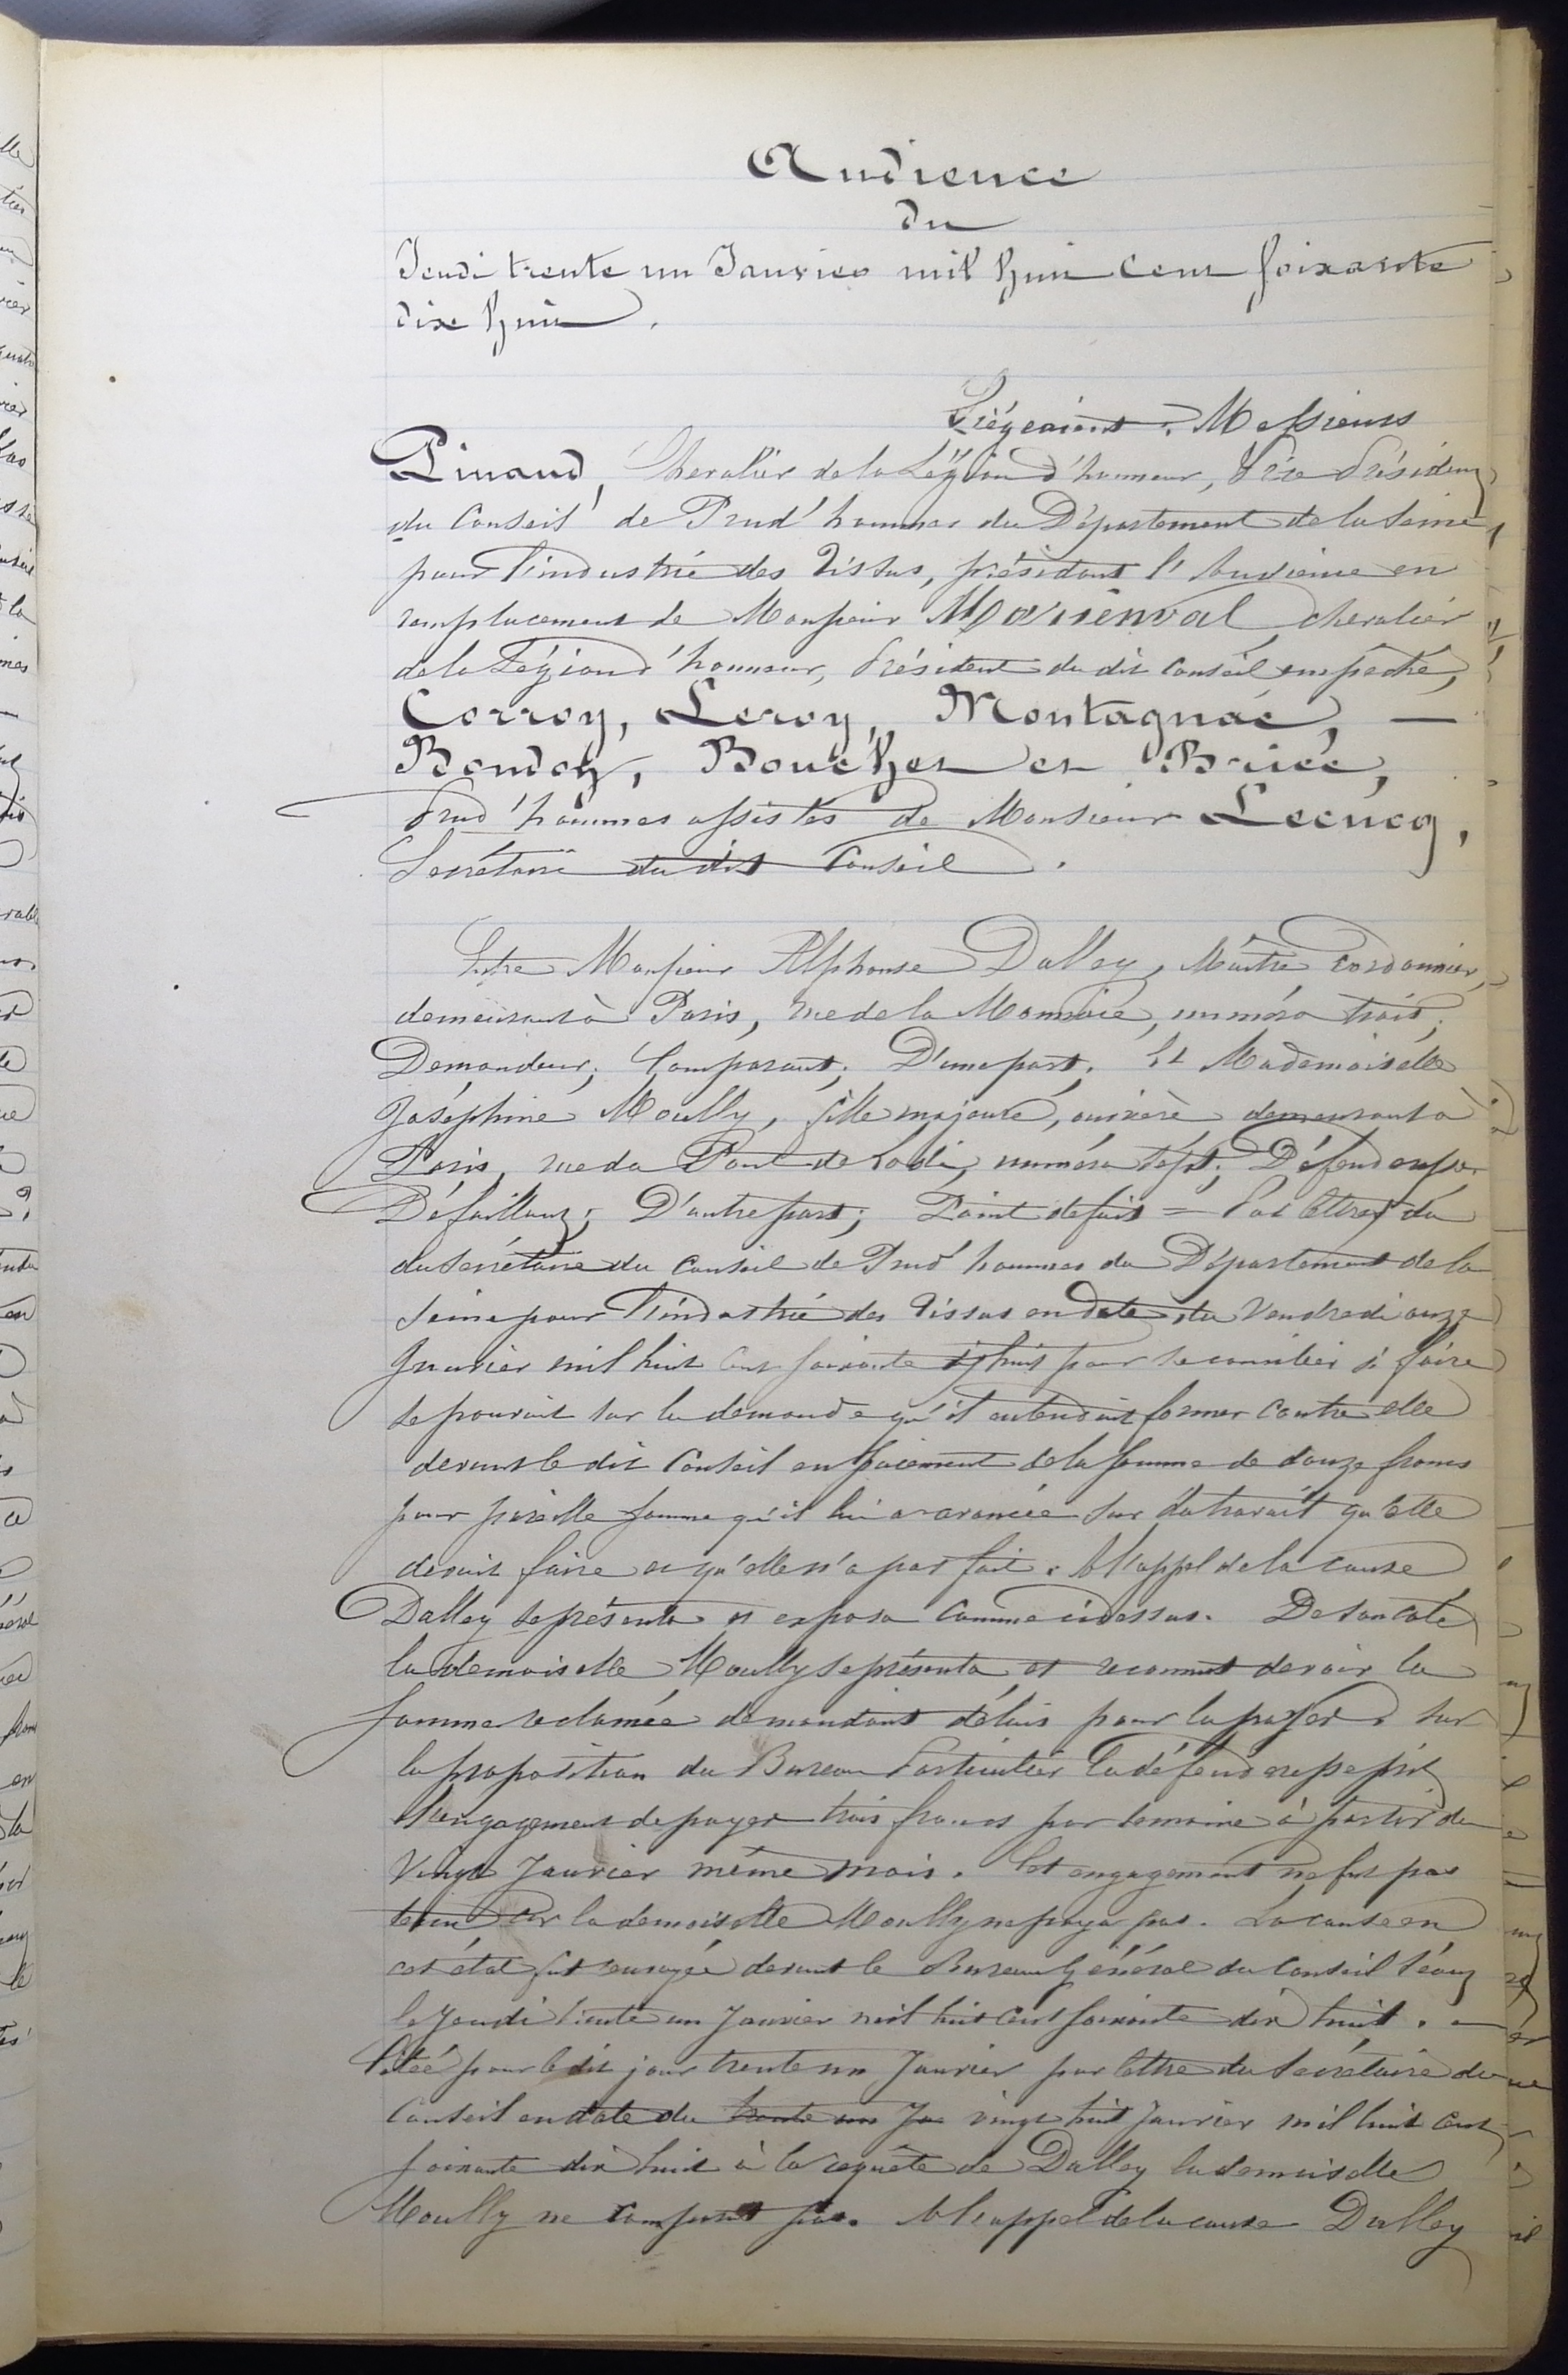 Audience
du
Jeudi trente un Janvier mil huit cent soixante
dix huit.
Siégeaient : Messieurs
Pinaud, Chevalier de la Légion d'honneur, Vice Président
du Conseil de Prud'hommes du Département de la Seine
pour l'industrie des Tissus, présidant l'audience en
remplacement de Monsieur Marienval chevalier
de la Légion d'honneur, Président du dit Conseil empêché,
Corroy, Leroy, Montagnac, —
Bondoy, Boucher et Briée,
Prud'hommes assistés de Monsieur Lecucq,
Secrétaire du dit Conseil.
Entre Monsieur Alphonse Dalley, Maître Cordonnier,
demeurant à Paris, rue de la Monnaie, numéro trois;
Demandeur; Comparant; D'une part; Et Mademoiselle
Joséphine Moully, fille majeure, ouvrière demeurant à
Paris, rue du Pont de Lodi, numéro sept; Défenderesse
Défaillant; D'autre part; Point de fait = Par lettres du
du Secrétaire du Conseil de Prud'hommes du Département de la
Seine pour l'industrie des Tissus en date du Vendredi onze
Janvier mil huit cent soixante dix huit pour se concilier si faire
se pouvait sur la demande qu'il entendait former contre elle
devant le dit Conseil en paiement de la somme de douze francs
pour pareille somme qu'il lui a avancée sur du travail qu'elle
devait faire et qu'elle n'a pas fait. A l'appel de la cause
Dalley se présenta et exposa comme ci dessus. De son côté
la demoiselle Moully se présenta et reconnut devoir la
somme réclamée demandant délais pour la payer. Sur
la proposition du Bureau Particulier la défenderesse prit
l'engagement de payer trois francs par semaine à partir du
Vingt Janvier même mois. Cet engagement ne fut pas
tenu, car la demoiselle Moully ne paya pas. La cause en
cet état fut renvoyée devant le Bureau Général du Conseil séant
le Jeudi trente un Janvier mil huit cent soixante dix huit. —
Citée pour le dit jour trente un Janvier par lettre du Secrétaire du
Conseil en date du trente un Ja vingt huit Janvier mil huit cent
soixante dix huit à la requête de Dalley la demoiselle
Moully ne comparut pas. A l'appel de la cause Dalley